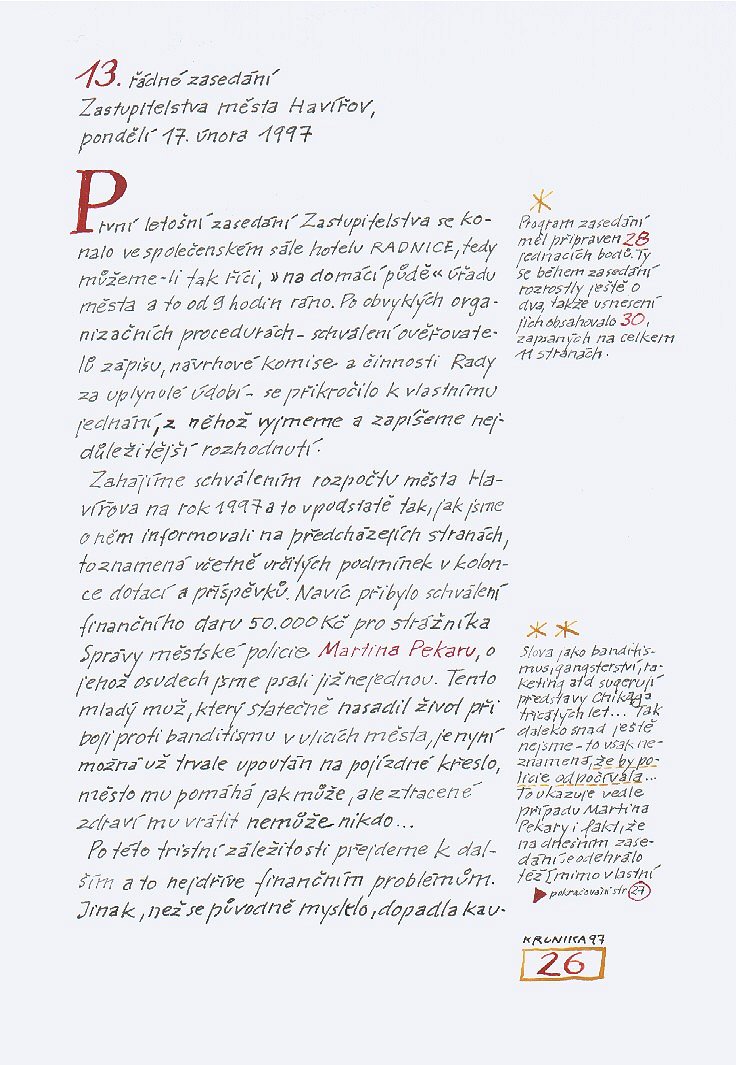 13. řádné zasedání
Zastupitelstva města Havířov,
pondělí 17. února 1997
První letošní zasedání Zastupitelstva se ko-
nalo ve společenském sále hotelu RADNICE, tedy
můžeme-li tak říci, »na domácí půdě« úřadu
města a to od 9 hodin ráno. Po obvyklých orga-
nizačních procedurách - schválení ověřovate-
lů zápisu, návrhové komise a činnosti Rady
za uplynulé údobí - se přikročilo k vlastnímu
jednání, z něhož vyjmeme a zapíšeme nej-
důležitější rozhodnutí.
Zahájíme schválením rozpočtu města Ha-
vířova na rok 1997 a to v podstatě tak, jak jsme
o něm informovali na předcházejích stranách,
to znamená včetně určitých podmínek v kolon-
ce dotací a příspěvků. Navíc přibylo schválení
finančního daru 50.000 Kč pro strážníka
Správy městské policie Martina Pekaru, o
jehož osudech jsme psali již nejednou. Tento
mladý muž, který statečně nasadil život při
boji proti banditismu v ulicích města, je nyní
možná už trvale upoután na pojízdné křeslo,
město mu pomáhá jak může, ale ztracené
zdraví mu vrátit nemůže nikdo...
Po této tristní záležitosti přejdeme k dal-
ším a to nejdříve finančním problémům.
Jinak, než se původně myslelo, dopadla kau-
*
Program zasedání
měl připraven 28
jednacích bodů. Ty
se během zasedání
rozrostly ještě o
dva, takže usnesení
jich obsahovalo 30,
zapsaných na celkem
11 stranách.
* *
Slova jako banditis-
mus, gangsterství, ra-
keting atd sugerují
představy Chikaga
třicátých let... Tak
daleko snad ještě
nejsme - to však ne-
znamená, že by po-
licie odpočívala...
To ukazuje vedle
případu Martina
Pekary i fakt, že
na dnešním zase-
dání se odehrálo
též (mimo vlastní
pokračování str 27
KRONIKA 97
26